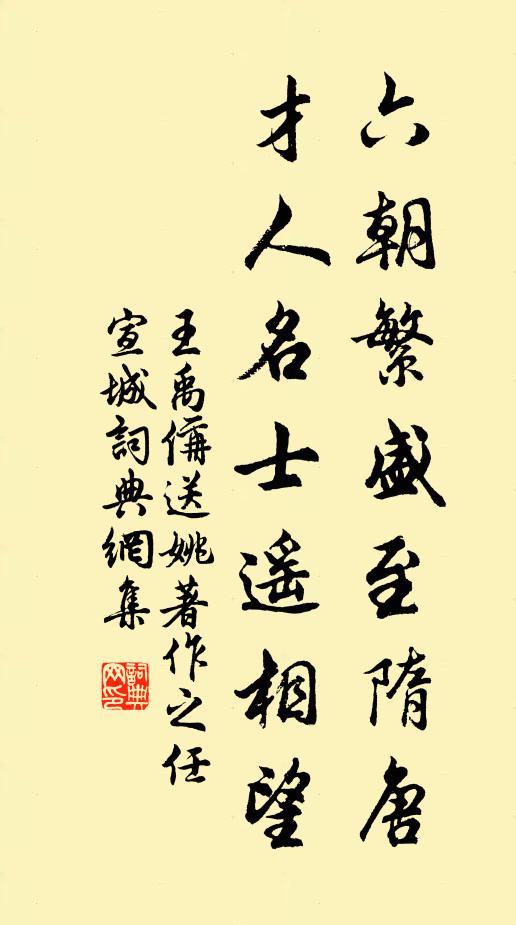 六朝繁盛至隋唐
才人名士遥相望
王禹偁送姚著作之任
宣城詞典網集
詞典网印